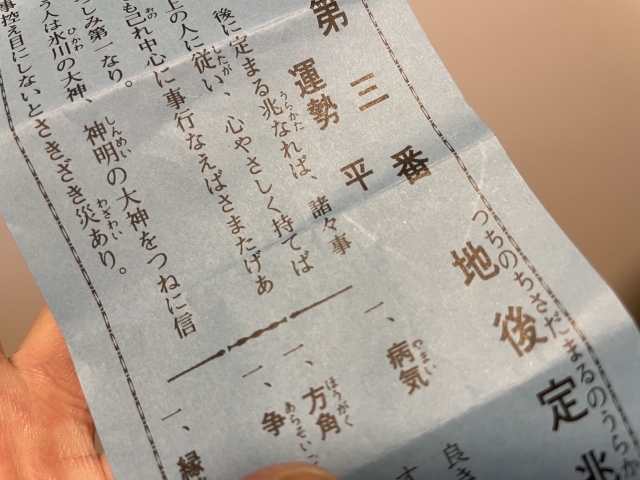 つちのちさだまるのうらか
地後定兆
第三番
平
運勢
後に定まる兆なれば、諸々事
上の人に従い、心やさしく持てば
も己れ中心に事行なえばさまたげあ
しみ第一なり。
う人は氷川の大神、神明の大神をつねに信
事控え目にしないとさきざき災あり。
一、病気
良き
す
一、方角
一、争
一、縁